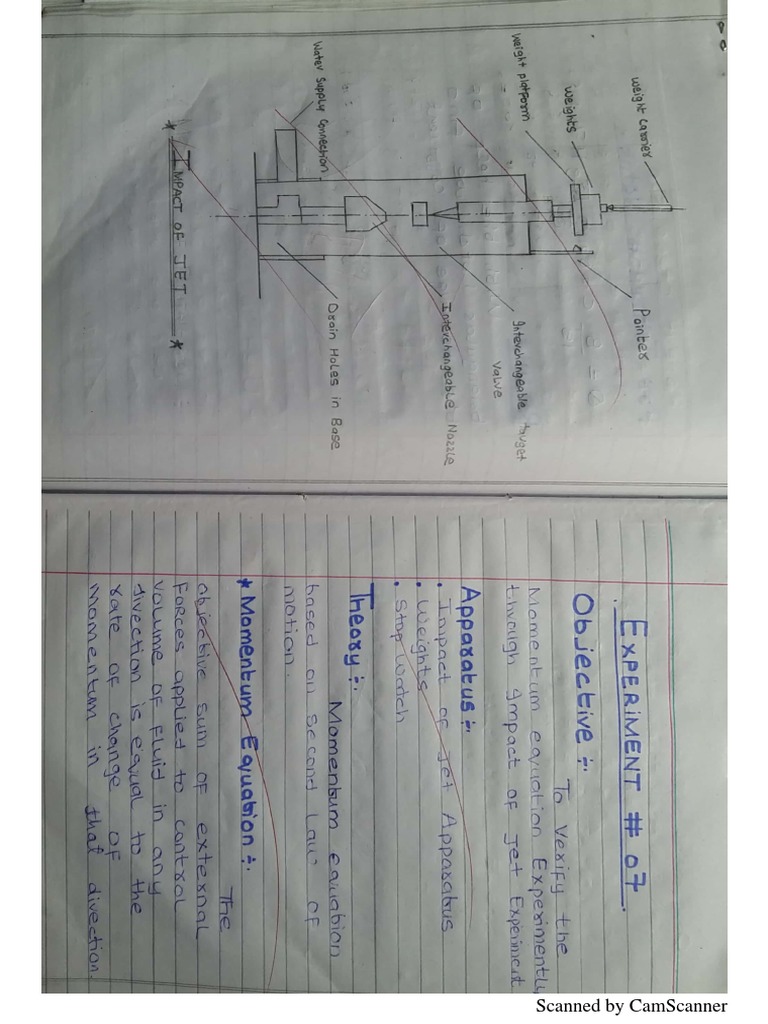 Weight Carrier
Weights
Weight Platform
Pointer
Interchangeable target
Valve
Interchangeable Nozzle
Water Supply Connection.
Drain Holes in Base
* IMPACT OF JET *
EXPERIMENT # 07
Objective ÷
To verify the
Momentum equation Experimently
through Impact of Jet Experiment
Apparatus ÷
• Impact of Jet Apparatus
• Weights
• Stop watch
Theory ÷
Momentum equation
based on second Law of
motion.
* Momentum Equation ÷
The
objective sum of external
Forces applied to control
volume of fluid in any
direction is equal to the
rate of change of
Momentum in that direction.
Scanned by CamScanner